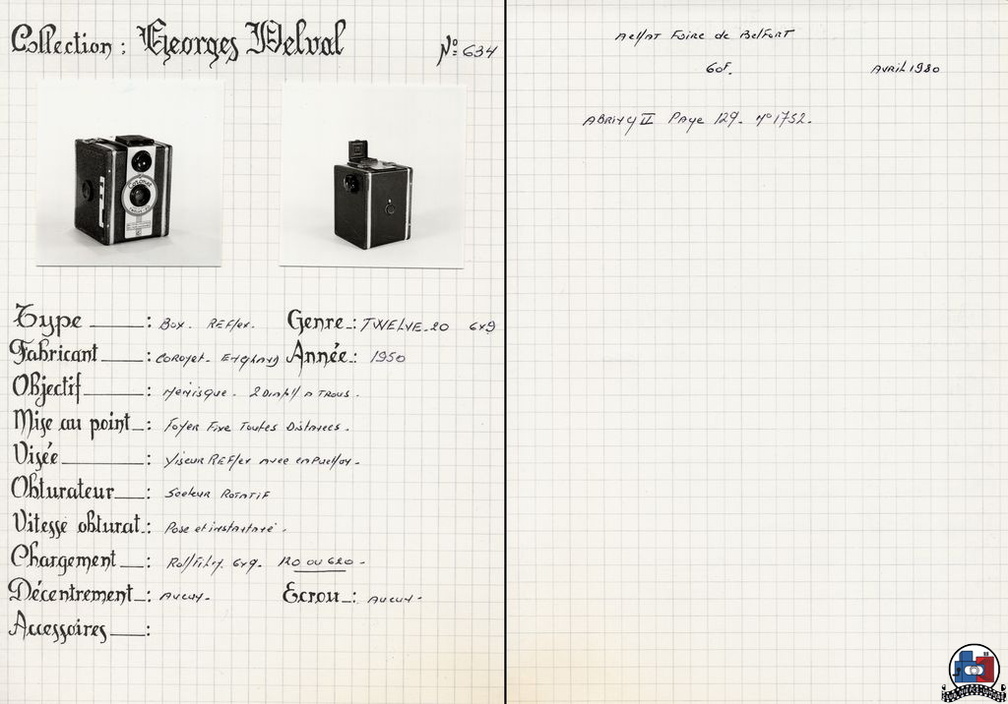 Collection : Georges Delval
N° 634
Type : Box. REFlex.
Genre : TWELVE-20 6x9
Fabricant : Coronet. England
Année : 1950
Objectif : Ménisque. 2 Diaph à Trous.
Mise au point : Foyer Fixe Toutes Distances.
Visée : Viseur REFlex avec capuchon.
Obturateur : Secteur Rotatif
Vitesse obturat. : Pose et instantané.
Chargement : Roll Film. 6x9. 120 ou 620.
Décentrement : Aucun.
Ecrou : Aucun.
Accessoires :
Achat Foire de Belfort
60F. Avril 1980
ABRING II Page 129. n° 1752.